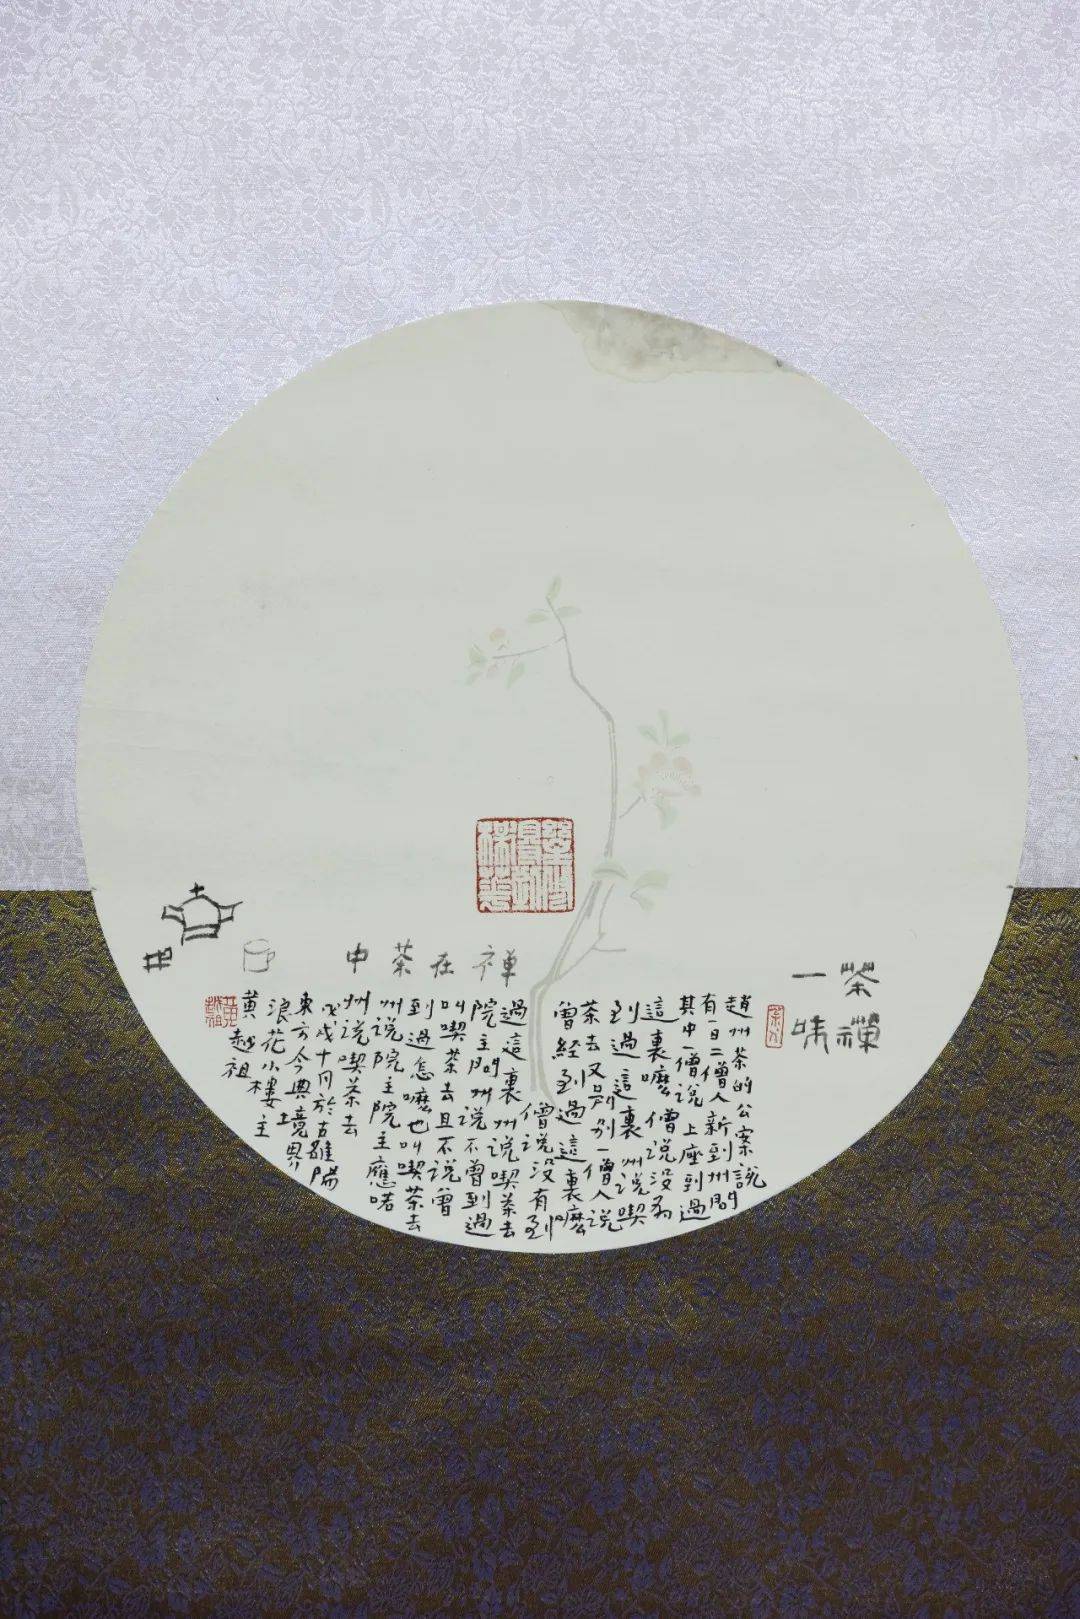 茶禪
一味
趙州茶的公案說
有一日二僧人新到州問
其中一僧説上座到過
這裏嚒僧说没有
到過這裏州说喫
茶去又別一僧人说
曾經到過這裏嚒
僧说没有到
過這裏州说喫茶去
院主問州说不曾到過
叫喫茶去且不说曾
到過怎嚒也叫喫茶去
州说院主院主應喏
州说喫茶去
戊戌十月於古雒陽
東方今典境界
浪花小樓主
黄越祖
禅在茶中